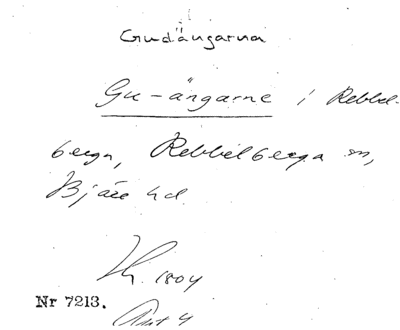 Gudängarna
Gu-ängarne i Rebbel-
berga, Rebbelberga sn,
Bjäre hd.
1804
Nr 7213.